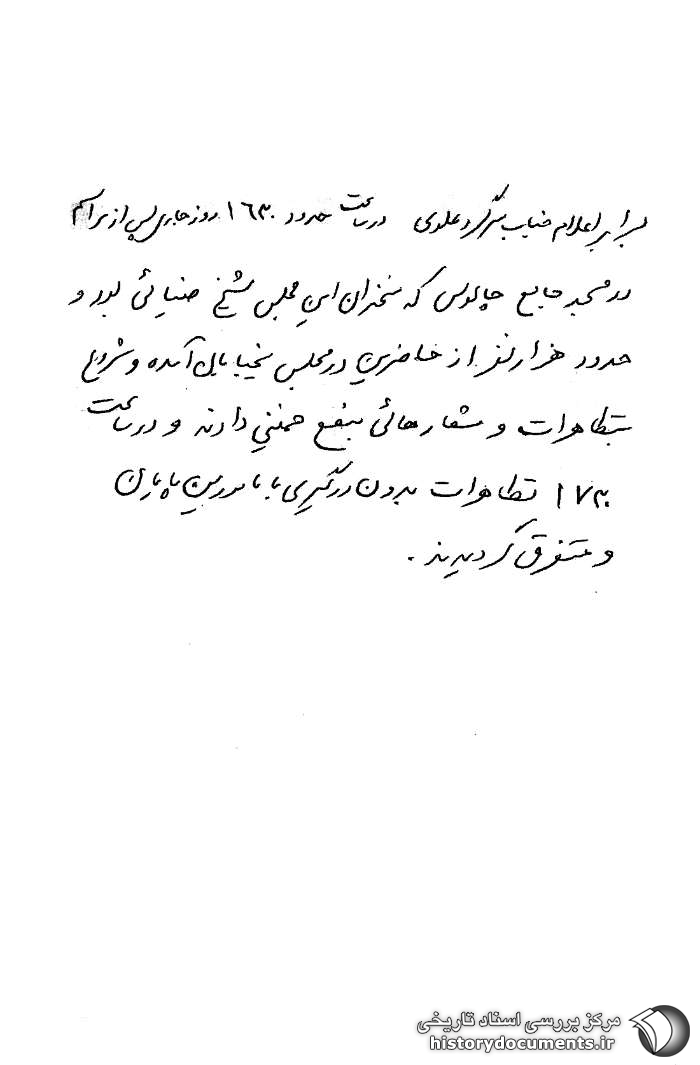 برابر اعلام جناب سرگرد علوی در ساعت حدود ۱۶۳۰ روز جاری پس از مراسم
در مسجد جامع چالوس که سخنران این مجلس شیخ ضیائی بود و
حدود هزار نفر از حاضرین در مجلس بخیابان آمده و شروع
بتظاهرات و شعارهائی بنفع خمینی دادند و در ساعت
۱۷۳۰ تظاهرات بدون درگیری با مامورین پایان
و متفرق گردیدند.
مرکز بررسی اسناد تاریخی
historydocuments.ir